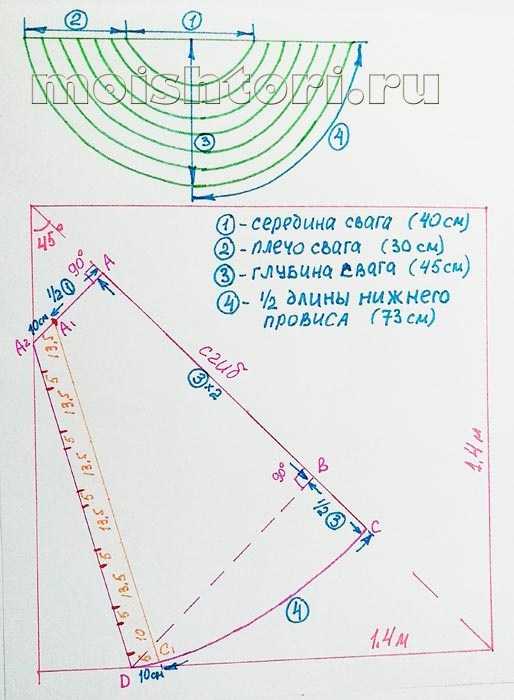 ② ①
moishtori.ru
③ ④
45°
① - середина свага (40см)
② - плечо свага (30см)
③ - глубина свага (45см)
④ - 1/2 длины нижнего
провиса (73см)
90°
A
1/2 ①
10см
A₁
A₂
сгиб
③×2
13.5
5
5
13.5
5
5
13.5
5
5
13.5
5
5
13.5
5
10
5
B
90°
1/2 ③
C
④
1.4м
1.4м
C₁
D
10см